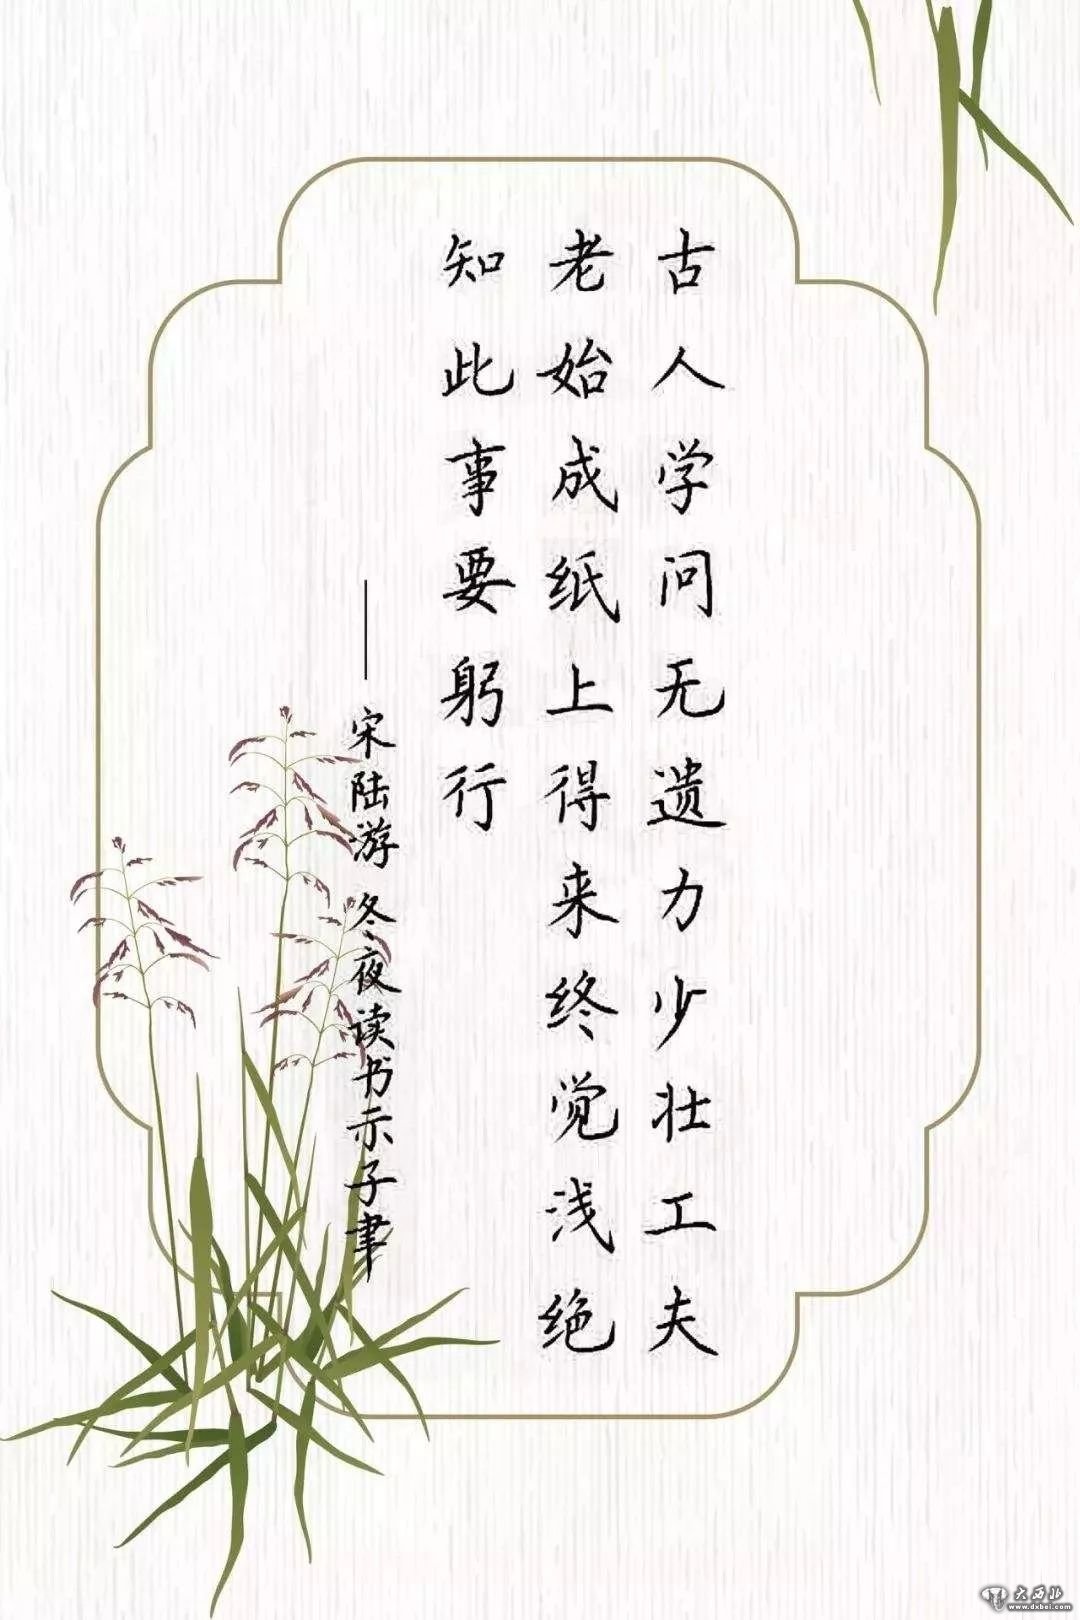 古人学问无遗力少壮工夫
老始成纸上得来终觉浅绝
知此事要躬行
——宋陆游 冬夜读书示子聿
大西北
www.dxbei.com